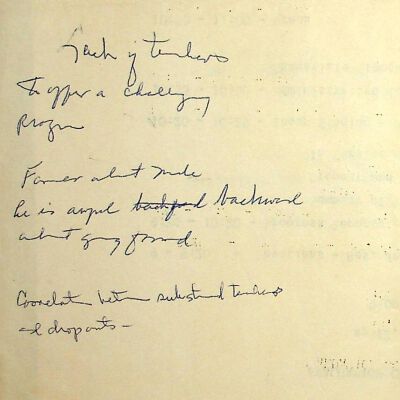 Lack of teachers
To offer a challenging
program
Farmer about mule
he is awful backward
about going forward
Correlation between substandard teachers
& dropouts -